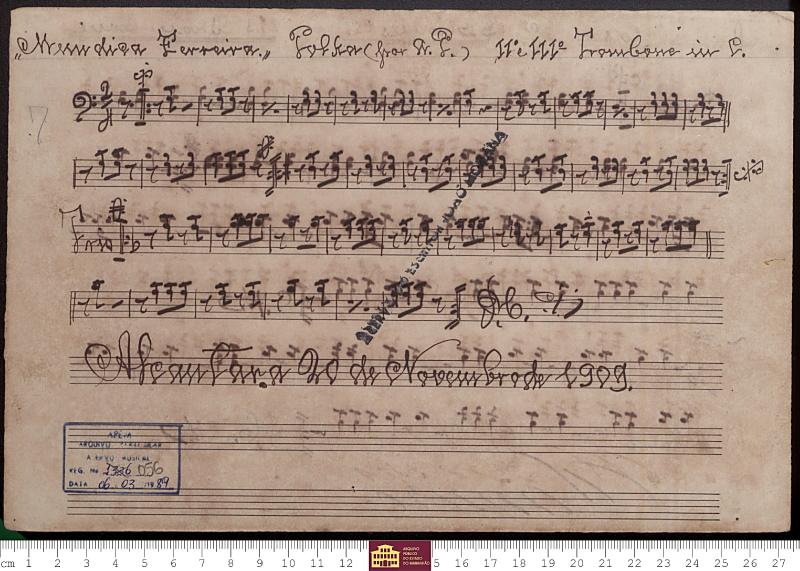 „Mundica Ferreira.„ Polka (por A. P.) IIº e IIIº Trombone in C.
Trio
D.C.
Alcantara 20 de Novembro de 1909.
ARQUIVO ESCRITOR JOÃO MOHANA
APEM
ACERVO MUSICAL
REG. No 1336 056
DATA 06 . 03 . 1989
cm 1 2 3 4 5 6 7 8 9 10 11 12 5 16 17 18 19 20 21 22 23 24 25 26 27
ARQUIVO
PÚBLICO
DO ESTADO
DO MARANHÃO